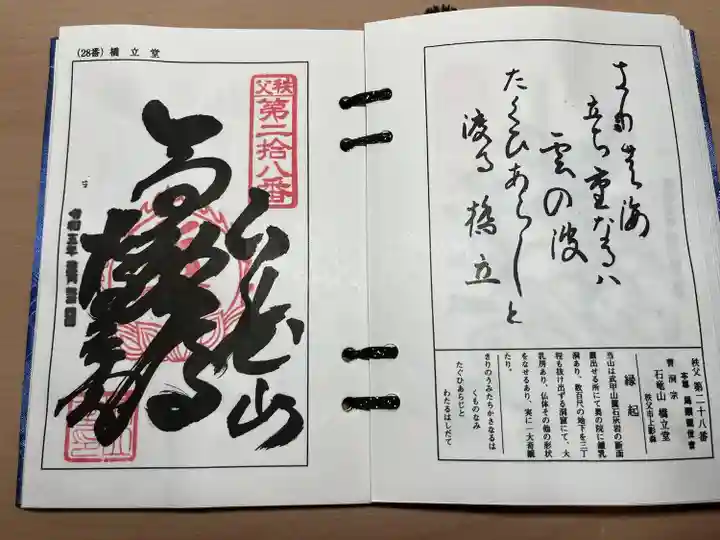 (28番) 橋立堂
秩父
第二拾八番
石龍山
橋立堂
立ち重なるハ
雲の波
たくひあらしと
渡る橋立
秩父 第二十八番
本尊 馬頭観世音
曹洞宗
石竜山 橋立堂
秩父市上影森
縁起
当山は武甲山麓石灰岩の断面
露出せる所にて奥の院に鍾乳
洞あり、数百尺の地下を三丁
程も抜け出ずる洞窟にて、大
乳房あり、仏体その他の形状
をなせるあり、実に一大奇観
たり。
きりのうみたちかさなるは
くものなみ
たぐひあらじと
わたるはしだて